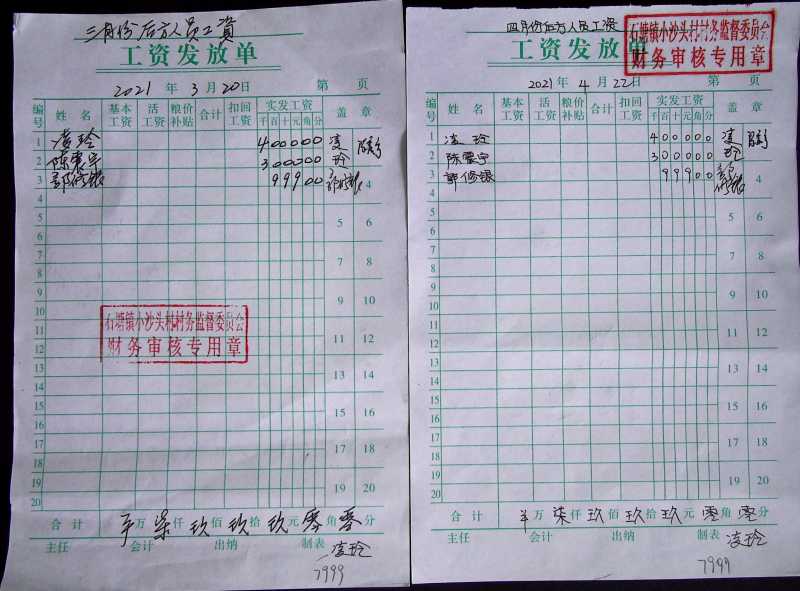 三月份后方人员工资
工资发放单
2021 年 3 月 20 日 第 页
编号 姓名 基本工资 活工资 粮价补贴 合计 扣回工资 实发工资 千百十元角分 盖章
1 凌玲 400000 凌
2 陈震宇 300000 玲
3 郭修银 99900 郭修银 4
4
5 5 6
6
7 7 8
8
9 9 10
10
11 石塘镇小沙头村村务监督委员会
12 财务审核专用章 11 12
13 13 14
14
15 15 16
16
17 17 18
18
19 19 20
20
合计 万 柒仟 玖佰 玖拾 玖元 零角 零分
主任 会计 出纳 制表 凌玲
7999
四月份后方人员工资
石塘镇小沙头村村务监督委员会
工资发放单 财务审核专用章
2021 年 4 月 22 日 第 页
编号 姓名 基本工资 活工资 粮价补贴 合计 扣回工资 实发工资 千百十元角分 盖章
1 凌玲 400000 凌
2 陈震宇 300000 玲
3 郭修银 99900 郭修银 4
4
5 5 6
6
7 7 8
8
9 9 10
10
11 11 12
12
13 13 14
14
15 15 16
16
17 17 18
18
19 19 20
20
合计 万 柒仟 玖佰 玖拾 玖元 零角 零分
主任 会计 出纳 制表 凌玲
7999